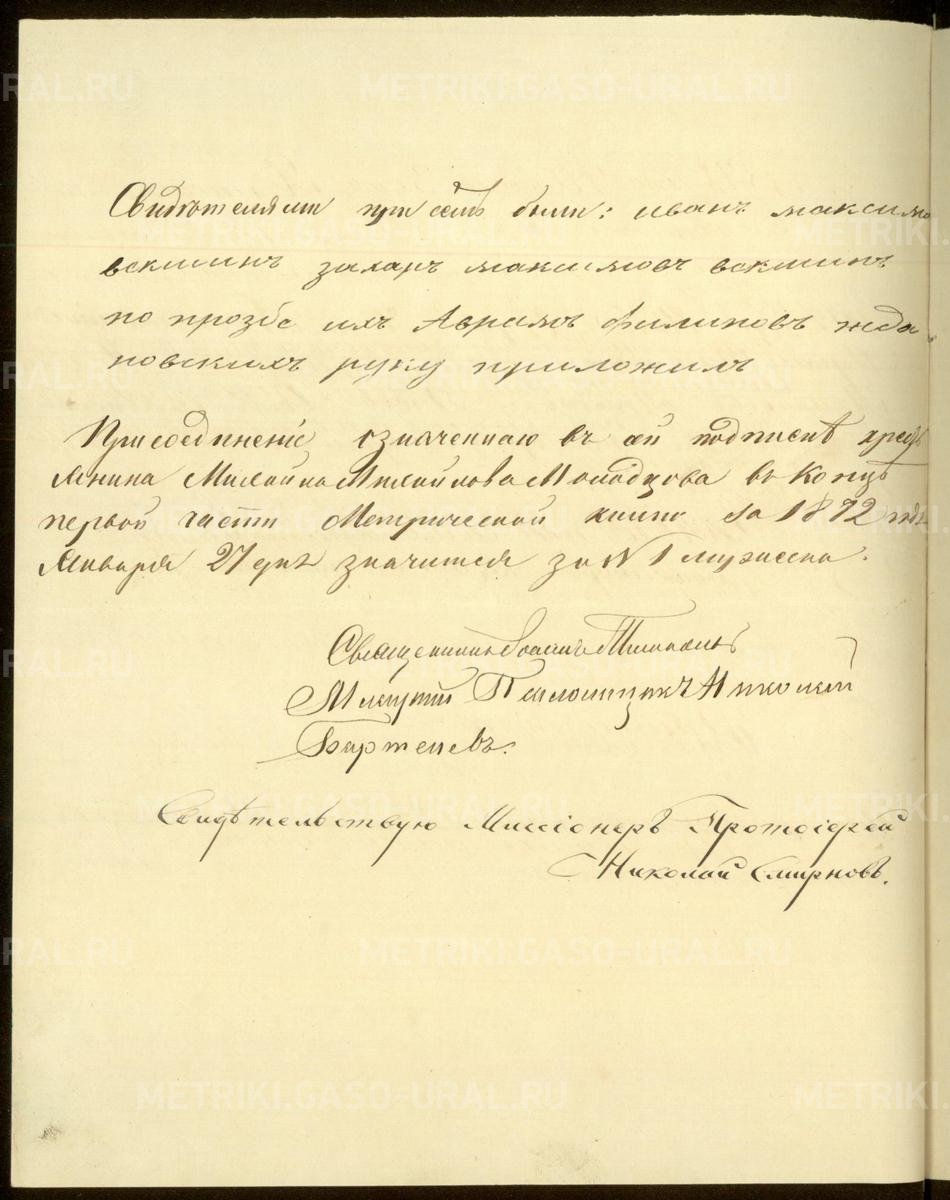 Свидѣтелями при семъ были: иванъ максимо
вскшинъ захаръ максимовъ вокшинъ
по прозбе ихъ Аврамъ филиповъ жда
новскихъ руку приложилъ
Присоединеніе означеннаго въ сей подпискѣ крестъ
янина Михаила Михайлова Молодцова въ концѣ
первой части Метрической книги за 1872 годъ
Января 27 дня значится за № 1 мужеска.
Священникъ Іоаннъ
Младшій Псаломщикъ Николай
Бартеневъ.
Свидѣтельствую Миссіонеръ Протоіерей
Николай Смирновъ.
METRIKI.GASO-URAL.RU